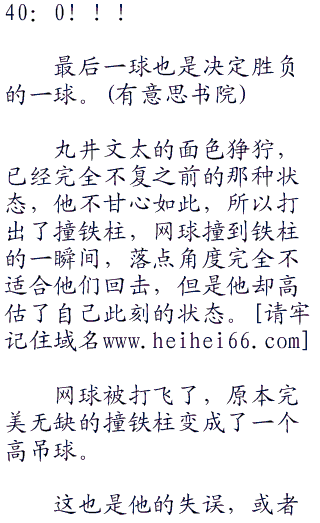 40：0！！！
最后一球也是决定胜负
的一球。(有意思书院)
丸井文太的面色狰狞，
已经完全不复之前的那种状
态，他不甘心如此，所以打
出了撞铁柱，网球撞到铁柱
的一瞬间，落点角度完全不
适合他们回击，但是他却高
估了自己此刻的状态。[请牢
记住域名www.heihei66.com]
网球被打飞了，原本完
美无缺的撞铁柱变成了一个
高吊球。
这也是他的失误，或者